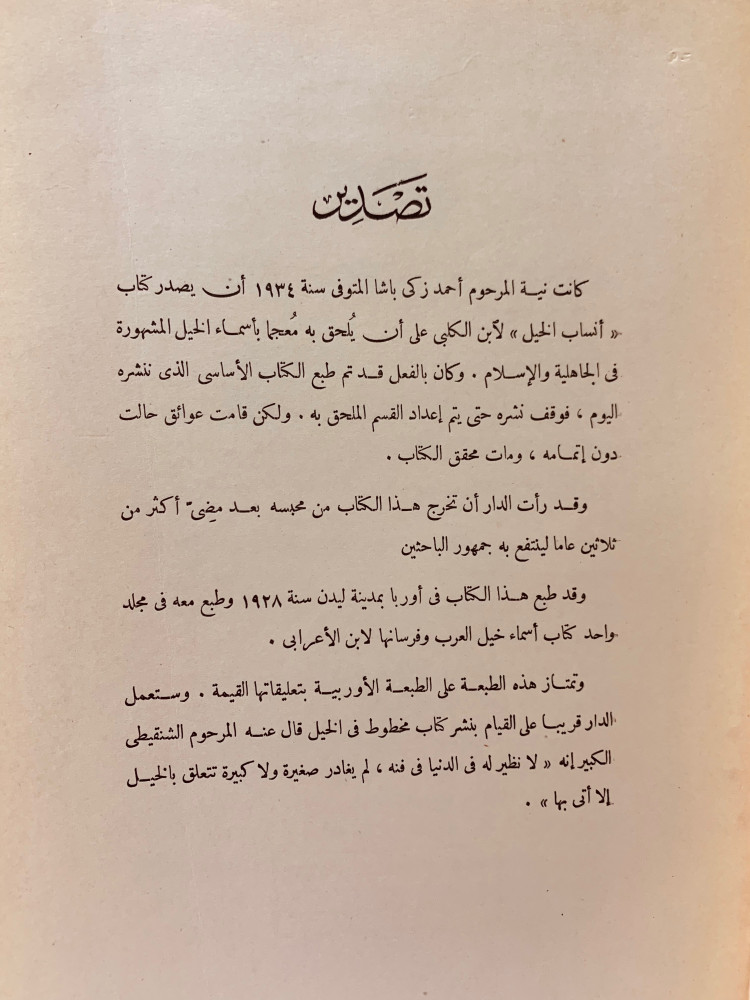 تَصْدِير
كانت نية المرحوم أحمد زكى باشا المتوفى سنة ١٩٣٤ أن يصدر كتاب
« أنساب الخيل » لابن الكلبى على أن يُلحق به مُعجما بأسماء الخيل المشهورة
فى الجاهلية والإسلام . وكان بالفعل قد تم طبع الكتاب الأساسى الذى ننشره
اليوم ، فوقف نشره حتى يتم إعداد القسم الملحق به . ولكن قامت عوائق حالت
دون إتمامه ، ومات محقق الكتاب .
وقد رأت الدار أن تخرج هذا الكتاب من محبسه بعد مضىّ أكثر من
ثلاثين عاما لينتفع به جمهور الباحثين
وقد طبع هذا الكتاب فى أوربا بمدينة ليدن سنة ١٩٢٨ وطبع معه فى مجلد
واحد كتاب أسماء خيل العرب وفرسانها لابن الأعرابى .
وتمتاز هذه الطبعة على الطبعة الأوربية بتعليقاتها القيمة . وستعمل
الدار قريبا على القيام بنشر كتاب مخطوط فى الخيل قال عنه المرحوم الشنقيطى
الكبير إنه « لا نظير له فى الدنيا فى فنه ، لم يغادر صغيرة ولا كبيرة تتعلق بالخيل
إلا أتى بها » .